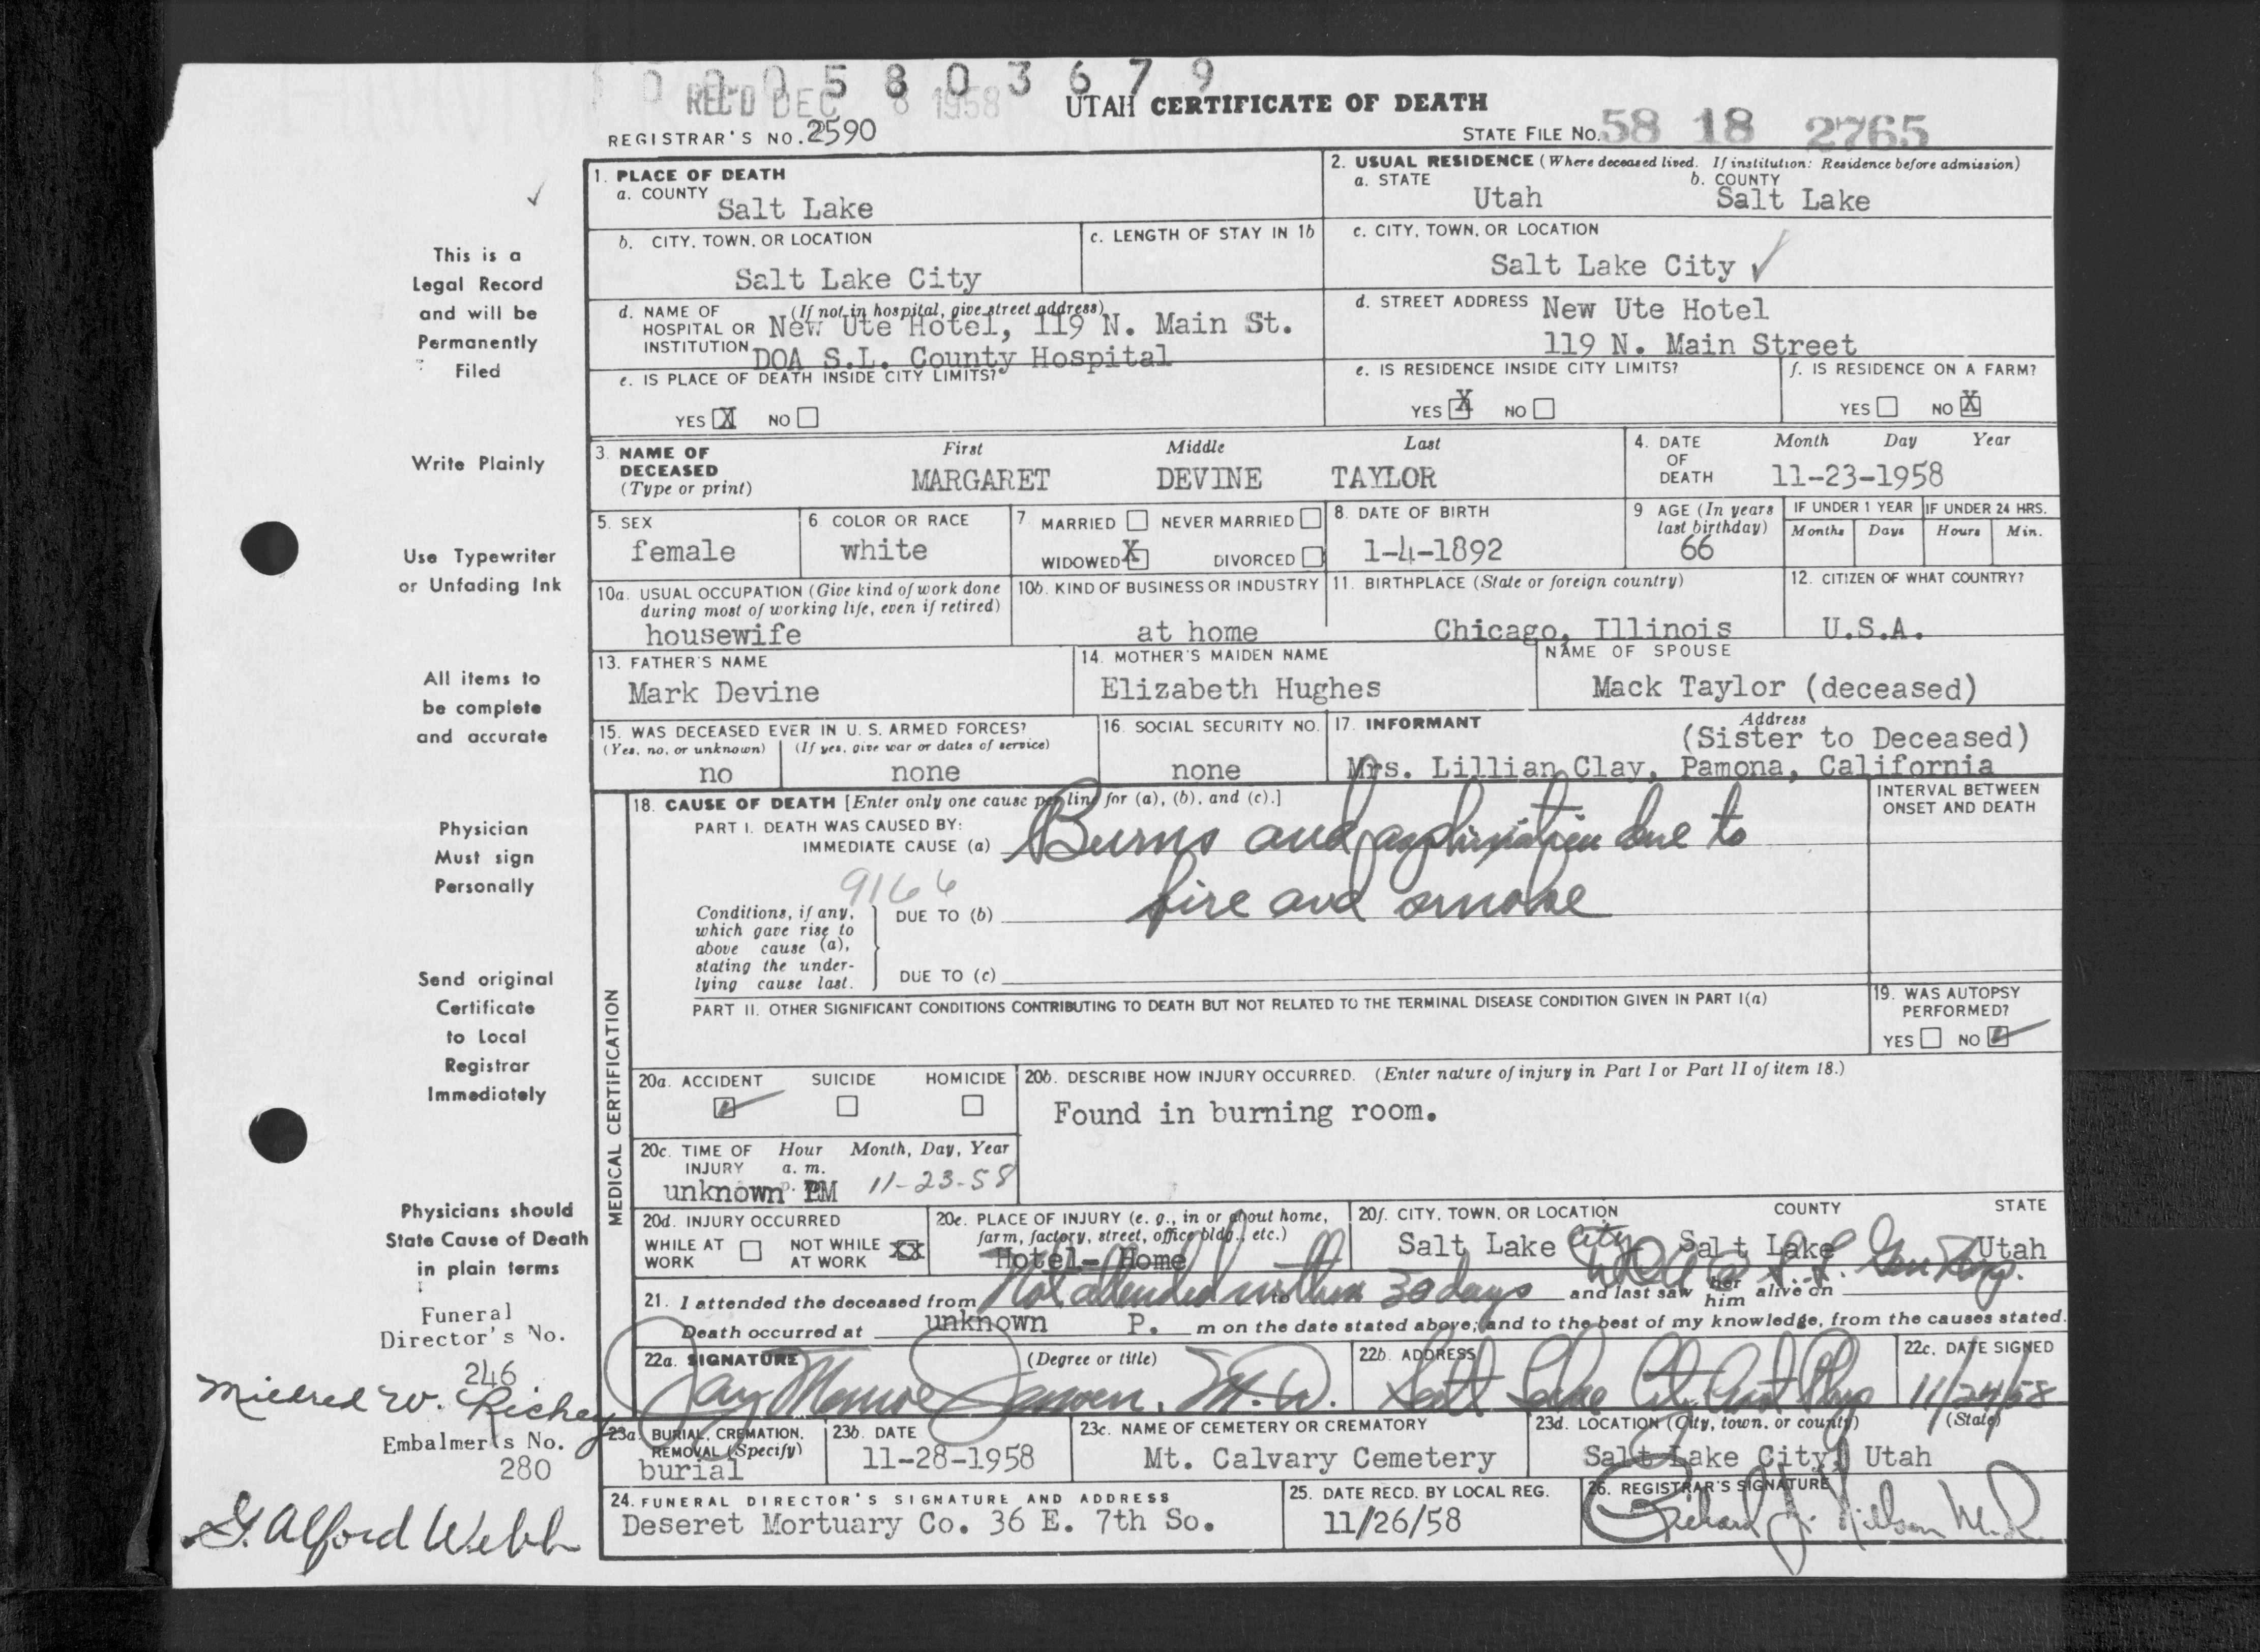 0 0 0 5 8 0 3 6 7 9
REC'D DEC 8 1958
UTAH CERTIFICATE OF DEATH
REGISTRAR'S NO. 2590
STATE FILE NO. 58 18 2765
1. PLACE OF DEATH
a. COUNTY
Salt Lake
2. USUAL RESIDENCE (Where deceased lived. If institution: Residence before admission)
a. STATE
Utah
b. COUNTY
Salt Lake
b. CITY, TOWN, OR LOCATION
Salt Lake City
c. LENGTH OF STAY IN 1b
c. CITY, TOWN, OR LOCATION
Salt Lake City ✓
d. NAME OF (If not in hospital, give street address)
HOSPITAL OR New Ute Hotel, 119 N. Main St.
INSTITUTION DOA S.L. County Hospital
d. STREET ADDRESS New Ute Hotel
119 N. Main Street
e. IS PLACE OF DEATH INSIDE CITY LIMITS?
YES X NO
e. IS RESIDENCE INSIDE CITY LIMITS?
YES X NO
f. IS RESIDENCE ON A FARM?
YES NO X
3. NAME OF
DECEASED
(Type or print)
First Middle Last
MARGARET DEVINE TAYLOR
4. DATE
OF
DEATH
Month Day Year
11-23-1958
5. SEX
female
6 COLOR OR RACE
white
7. MARRIED NEVER MARRIED
WIDOWED X DIVORCED
8. DATE OF BIRTH
1-4-1892
9 AGE (In years
last birthday)
66
IF UNDER 1 YEAR
Months Days
IF UNDER 24 HRS.
Hours Min.
10a. USUAL OCCUPATION (Give kind of work done
during most of working life, even if retired)
housewife
10b. KIND OF BUSINESS OR INDUSTRY
at home
11. BIRTHPLACE (State or foreign country)
Chicago, Illinois
12. CITIZEN OF WHAT COUNTRY?
U.S.A.
13. FATHER'S NAME
Mark Devine
14. MOTHER'S MAIDEN NAME
Elizabeth Hughes
NAME OF SPOUSE
Mack Taylor (deceased)
15. WAS DECEASED EVER IN U. S. ARMED FORCES?
(Yes, no, or unknown) (If yes, give war or dates of service)
no none
16. SOCIAL SECURITY NO.
none
17. INFORMANT Address
(Sister to Deceased)
Mrs. Lillian Clay, Pamona, California
MEDICAL CERTIFICATION
18. CAUSE OF DEATH [Enter only one cause per line for (a), (b), and (c).]
PART I. DEATH WAS CAUSED BY:
IMMEDIATE CAUSE (a) Burns and asphyxiation due to
9166
Conditions, if any,
which gave rise to
above cause (a),
stating the under-
lying cause last.
DUE TO (b) fire and smoke
DUE TO (c)
INTERVAL BETWEEN
ONSET AND DEATH
PART II. OTHER SIGNIFICANT CONDITIONS CONTRIBUTING TO DEATH BUT NOT RELATED TO THE TERMINAL DISEASE CONDITION GIVEN IN PART I(a)
19. WAS AUTOPSY
PERFORMED?
YES NO ✓
20a. ACCIDENT SUICIDE HOMICIDE
✓
20b. DESCRIBE HOW INJURY OCCURRED. (Enter nature of injury in Part I or Part II of item 18.)
Found in burning room.
20c. TIME OF Hour Month, Day, Year
INJURY a. m.
unknown p. PM 11-23-58
20d. INJURY OCCURRED
WHILE AT WORK NOT WHILE AT WORK XX
20e. PLACE OF INJURY (e. g., in or about home,
farm, factory, street, office bldg., etc.)
Hotel- Home
20f. CITY, TOWN, OR LOCATION COUNTY STATE
Salt Lake City Salt Lake Utah
21. I attended the deceased from Not attended within 30 days to and last saw her him alive on
Death occurred at unknown P. m on the date stated above; and to the best of my knowledge, from the causes stated.
22a. SIGNATURE (Degree or title)
Jay Monroe Jensen, M.D.
22b. ADDRESS
Salt Lake
22c. DATE SIGNED
11/24/58
23a. BURIAL, CREMATION,
REMOVAL (Specify)
burial
23b. DATE
11-28-1958
23c. NAME OF CEMETERY OR CREMATORY
Mt. Calvary Cemetery
23d. LOCATION (City, town, or county) (State)
Salt Lake City, Utah
24. FUNERAL DIRECTOR'S SIGNATURE AND ADDRESS
Deseret Mortuary Co. 36 E. 7th So.
25. DATE RECD. BY LOCAL REG.
11/26/58
26. REGISTRAR'S SIGNATURE
Richard J. Nilsson M.D.
✓
This is a
Legal Record
and will be
Permanently
Filed
Write Plainly
Use Typewriter
or Unfading Ink
All items to
be complete
and accurate
Physician
Must sign
Personally
Send original
Certificate
to Local
Registrar
Immediately
Physicians should
State Cause of Death
in plain terms
Funeral
Director's No.
246
Mildred W. Richey
Embalmer's No.
280
G. Alford Webb